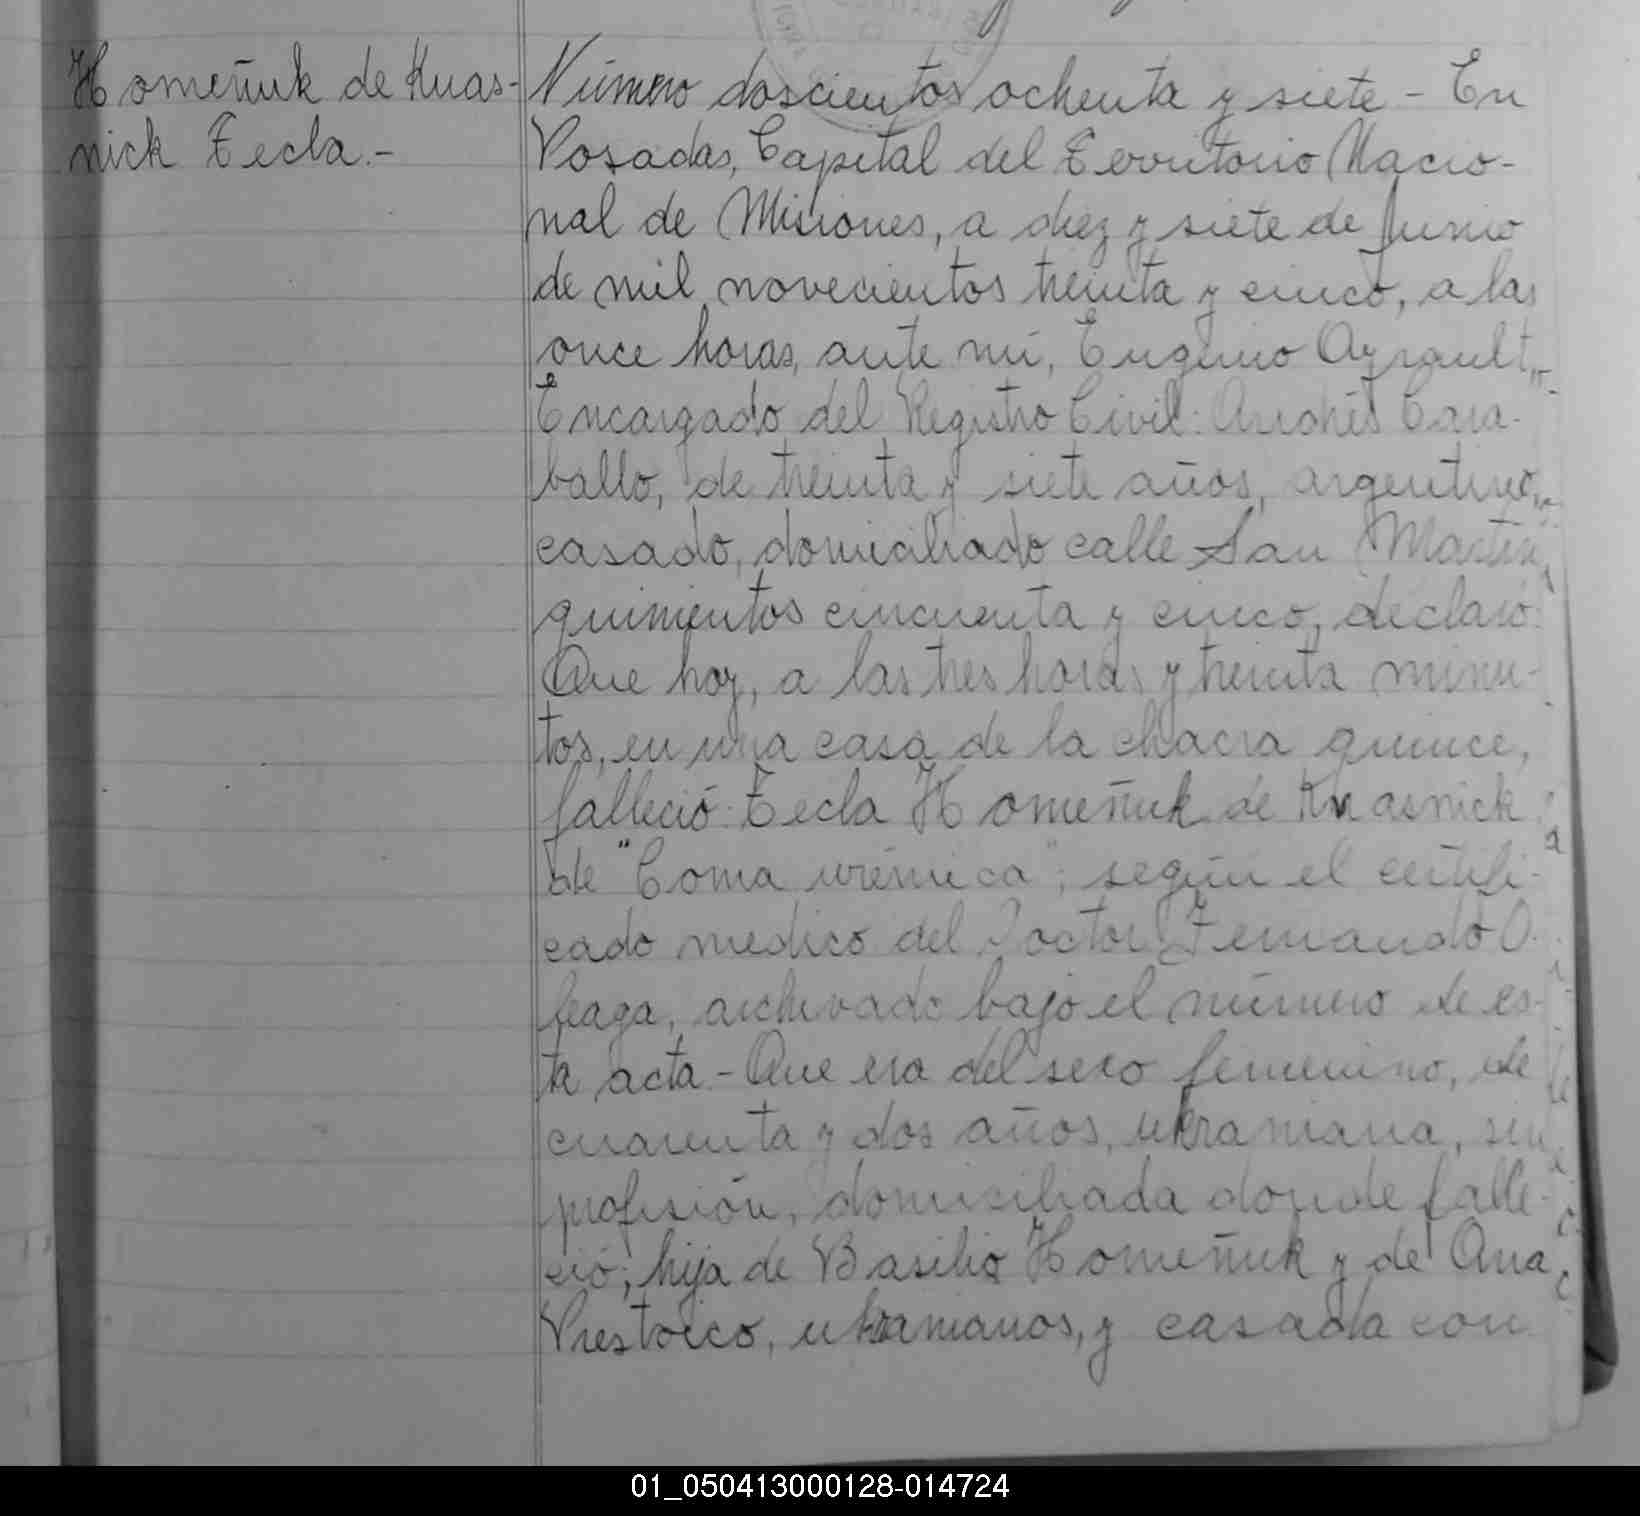 Homeñuk de Kuas-
nick Tecla.-
Número doscientos ochenta y siete - En
Posadas, Capital del Territorio Nacio-
nal de Misiones, a diez y siete de Junio
de mil novecientos treinta y cinco, a las
once horas, ante mí, Eugenio Ayrault,
Encargado del Registro Civil: Andrés Cara-
ballo, de treinta y siete años, argentino,
casado, domiciliado calle San Martín
quinientos cincuenta y cinco, declaró:
Que hoy, a las tres horas y treinta minu-
tos, en una casa de la chacra quince,
falleció: Tecla Homeñuk de Kuasnick
de "Coma urémica"; según el certifi-
cado medico del Doctor Fernando O.
feaga, archivado bajo el número de es-
ta acta - Que era del sexo femenino, de
cuarenta y dos años, ukraniana, sin
profesión, domiciliada donde falle-
ció; hija de Basilio Homeñuk y de Ana
Prestoico, ukranianos, y casada con
01_050413000128-014724